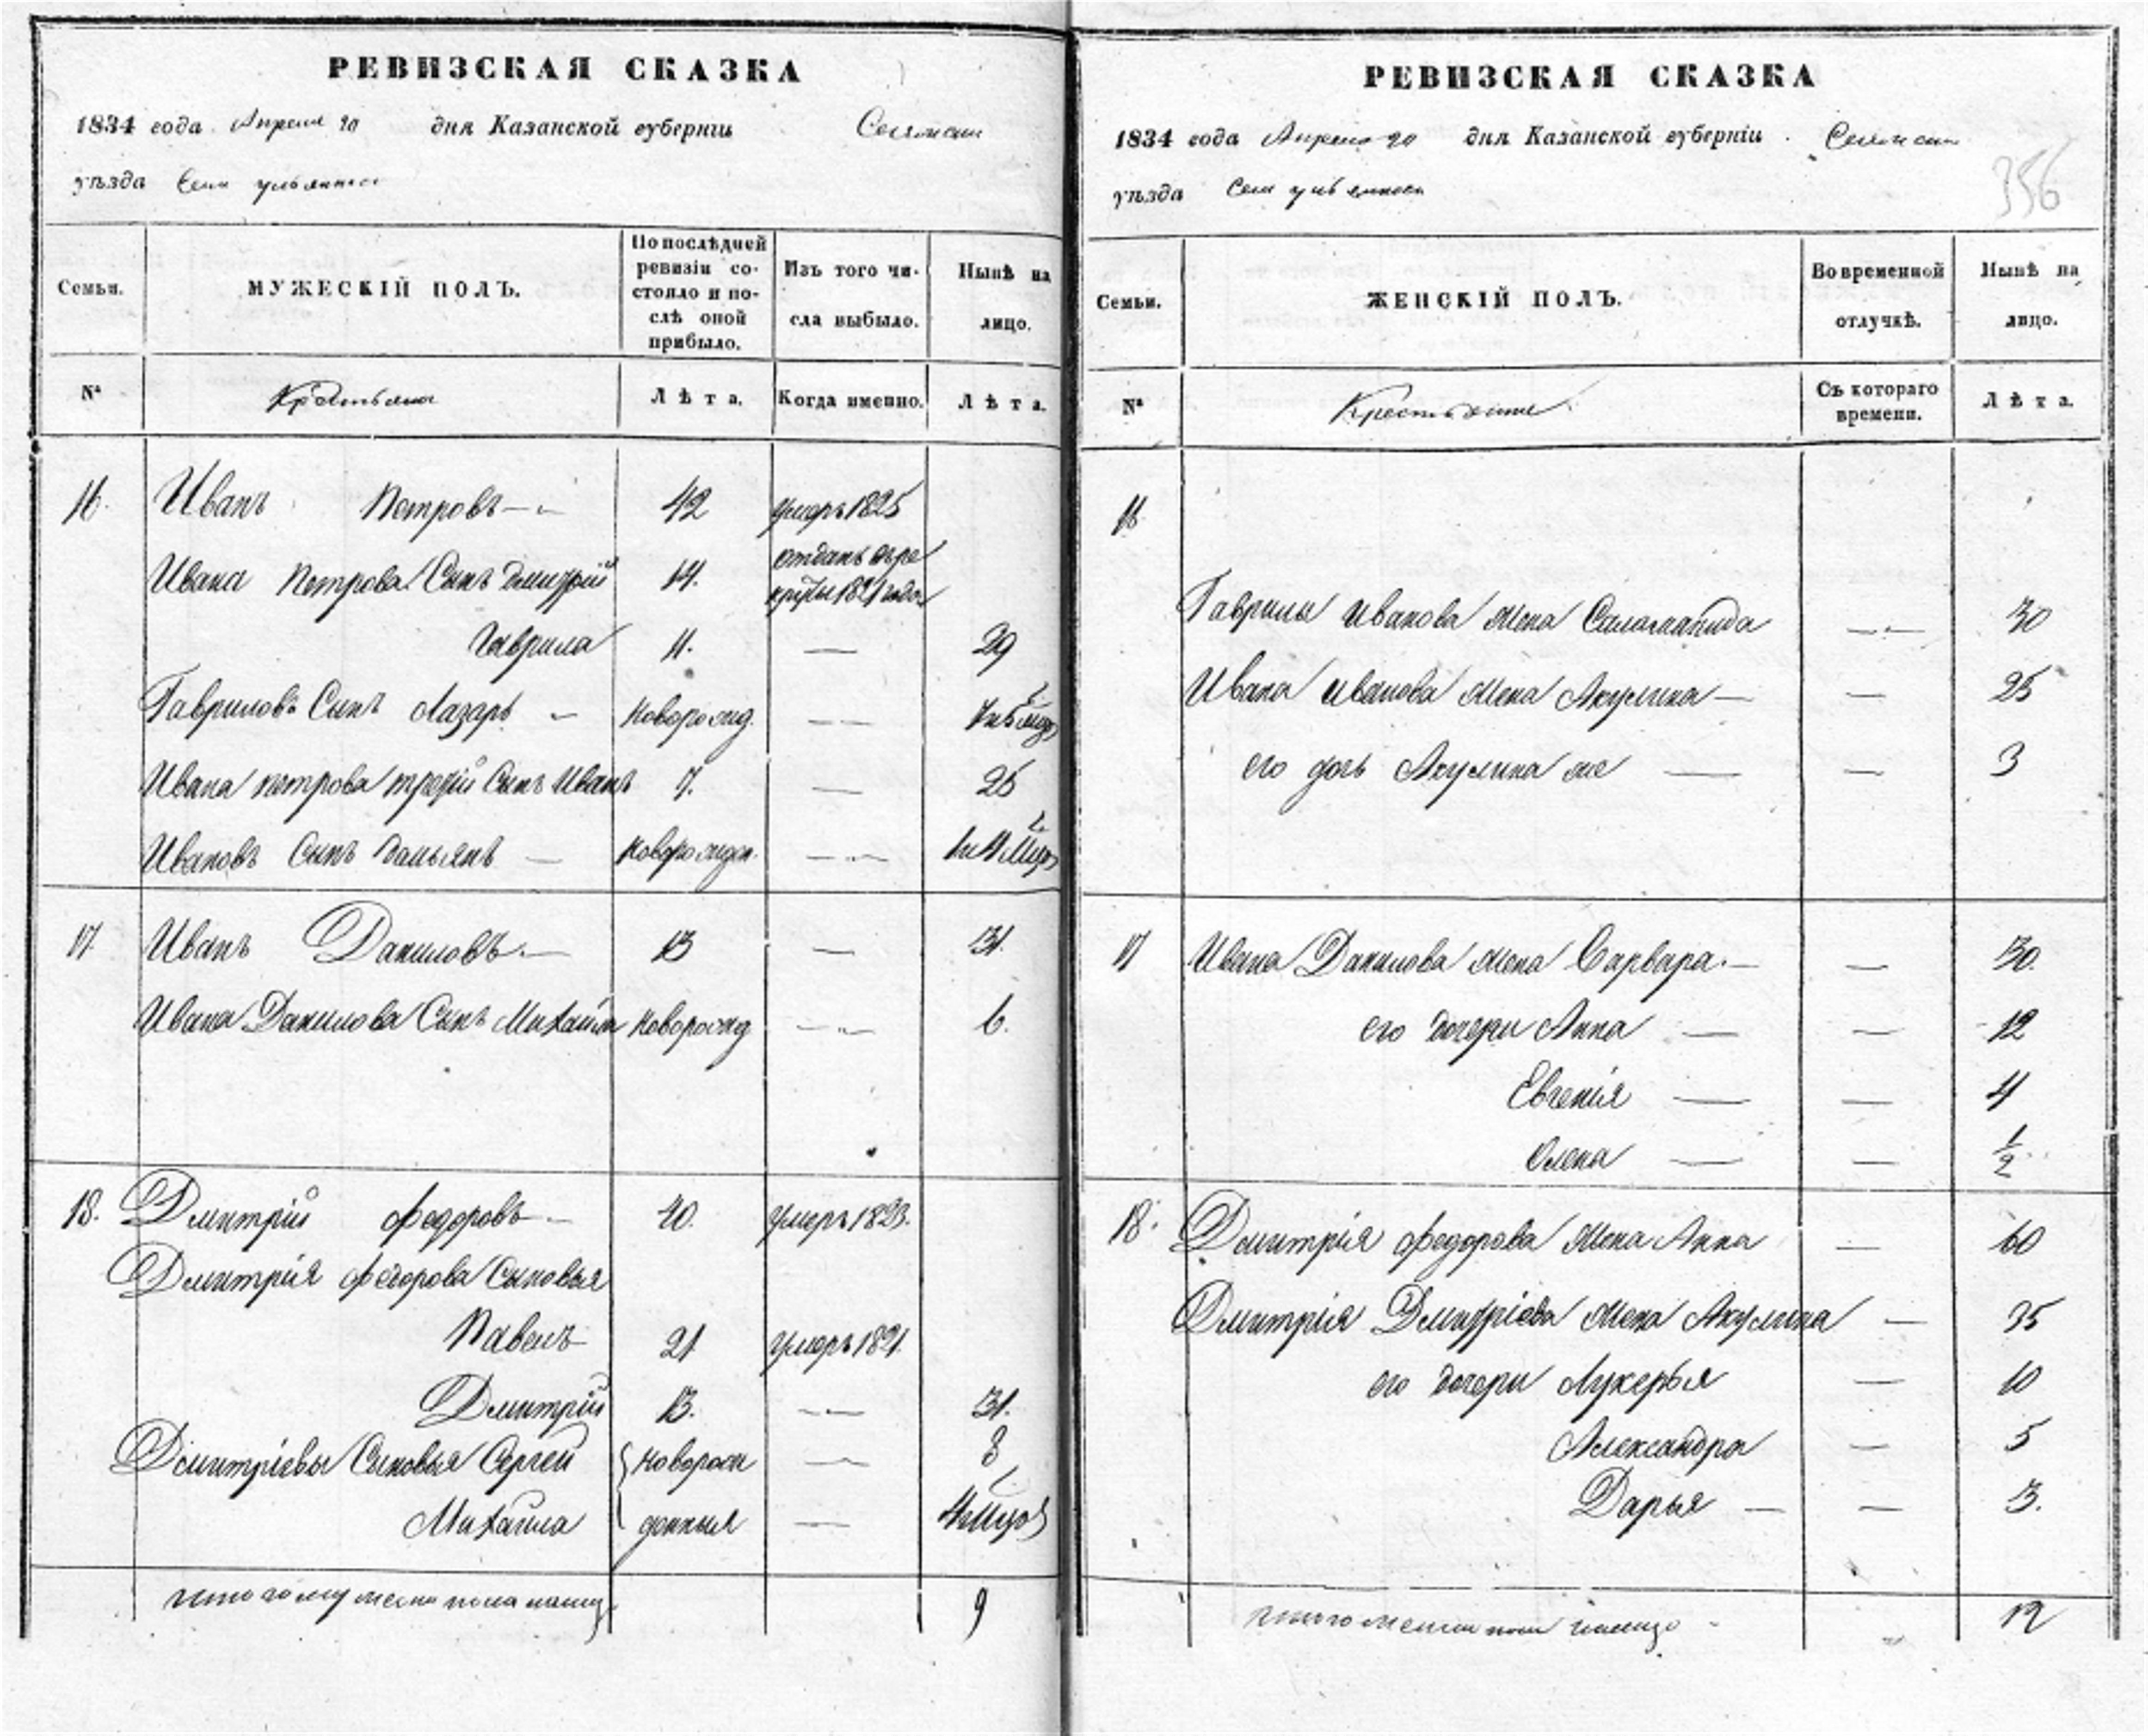 РЕВИЗСКАЯ СКАЗКА
1834 года Апреля 20 дня Казанской губерніи
уѣзда Села
Семьи.
МУЖЕСКІЙ ПОЛЪ.
По послѣдней ревизіи со-
стояло и по-
слѣ оной
прибыло.
Изъ того чи-
сла выбыло.
Нынѣ на
лицо.
№
Крестьяне
Лѣта.
Когда именно.
Лѣта.
16. Иванъ Петровъ — 42 умеръ 1825
Ивана Петрова Сынъ Дмитрій 14. отданъ въ ре
круты 1821 года
Гаврила 11. — 29
Гавриловъ Сынъ Лазарь — новорожд. —
Ивана петрова третій Сынъ Иванъ 7. — 25
Ивановъ Сынъ Даньянъ — новорожден. —
17 Иванъ Даниловъ. — 13 — 31.
Ивана Данилова Сынъ Михайла новорожд — 6.
18. Дмитрій Федоровъ — 40. умеръ 1823.
Дмитрія Федорова Сыновья
Павелъ 21 умеръ 1821.
Дмитрій 13. — 31.
Дмитріевы Сыновья Сергей новорож — 8
Михайла денныя —
Итого мужеска пола налицо 9
РЕВИЗСКАЯ СКАЗКА
1834 года Апреля 20 дня Казанской губерніи
уѣзда Села
356
Семьи.
ЖЕНСКІЙ ПОЛЪ.
Во временной
отлучкѣ.
Нынѣ на
лицо.
№
Крестьяне
Съ котораго
времени.
Лѣта.
16
Гаврилы Иванова Жена Саламанида — 30
Ивана Иванова Жена Акулина — — 25
его дочь Акулина же — — 3
17 Ивана Данилова Жена Варвара. — — 30.
его дочери Анна — — 12
Евгенія — — 4
Олена — — 1/2
18. Дмитрія Федорова Жена Анна — 60
Дмитрія Дмитріева Жена Акулина — 35
его дочери Лукерья — 10
Александра — 5
Дарья — — 3.
Итого женска пола налицо 12